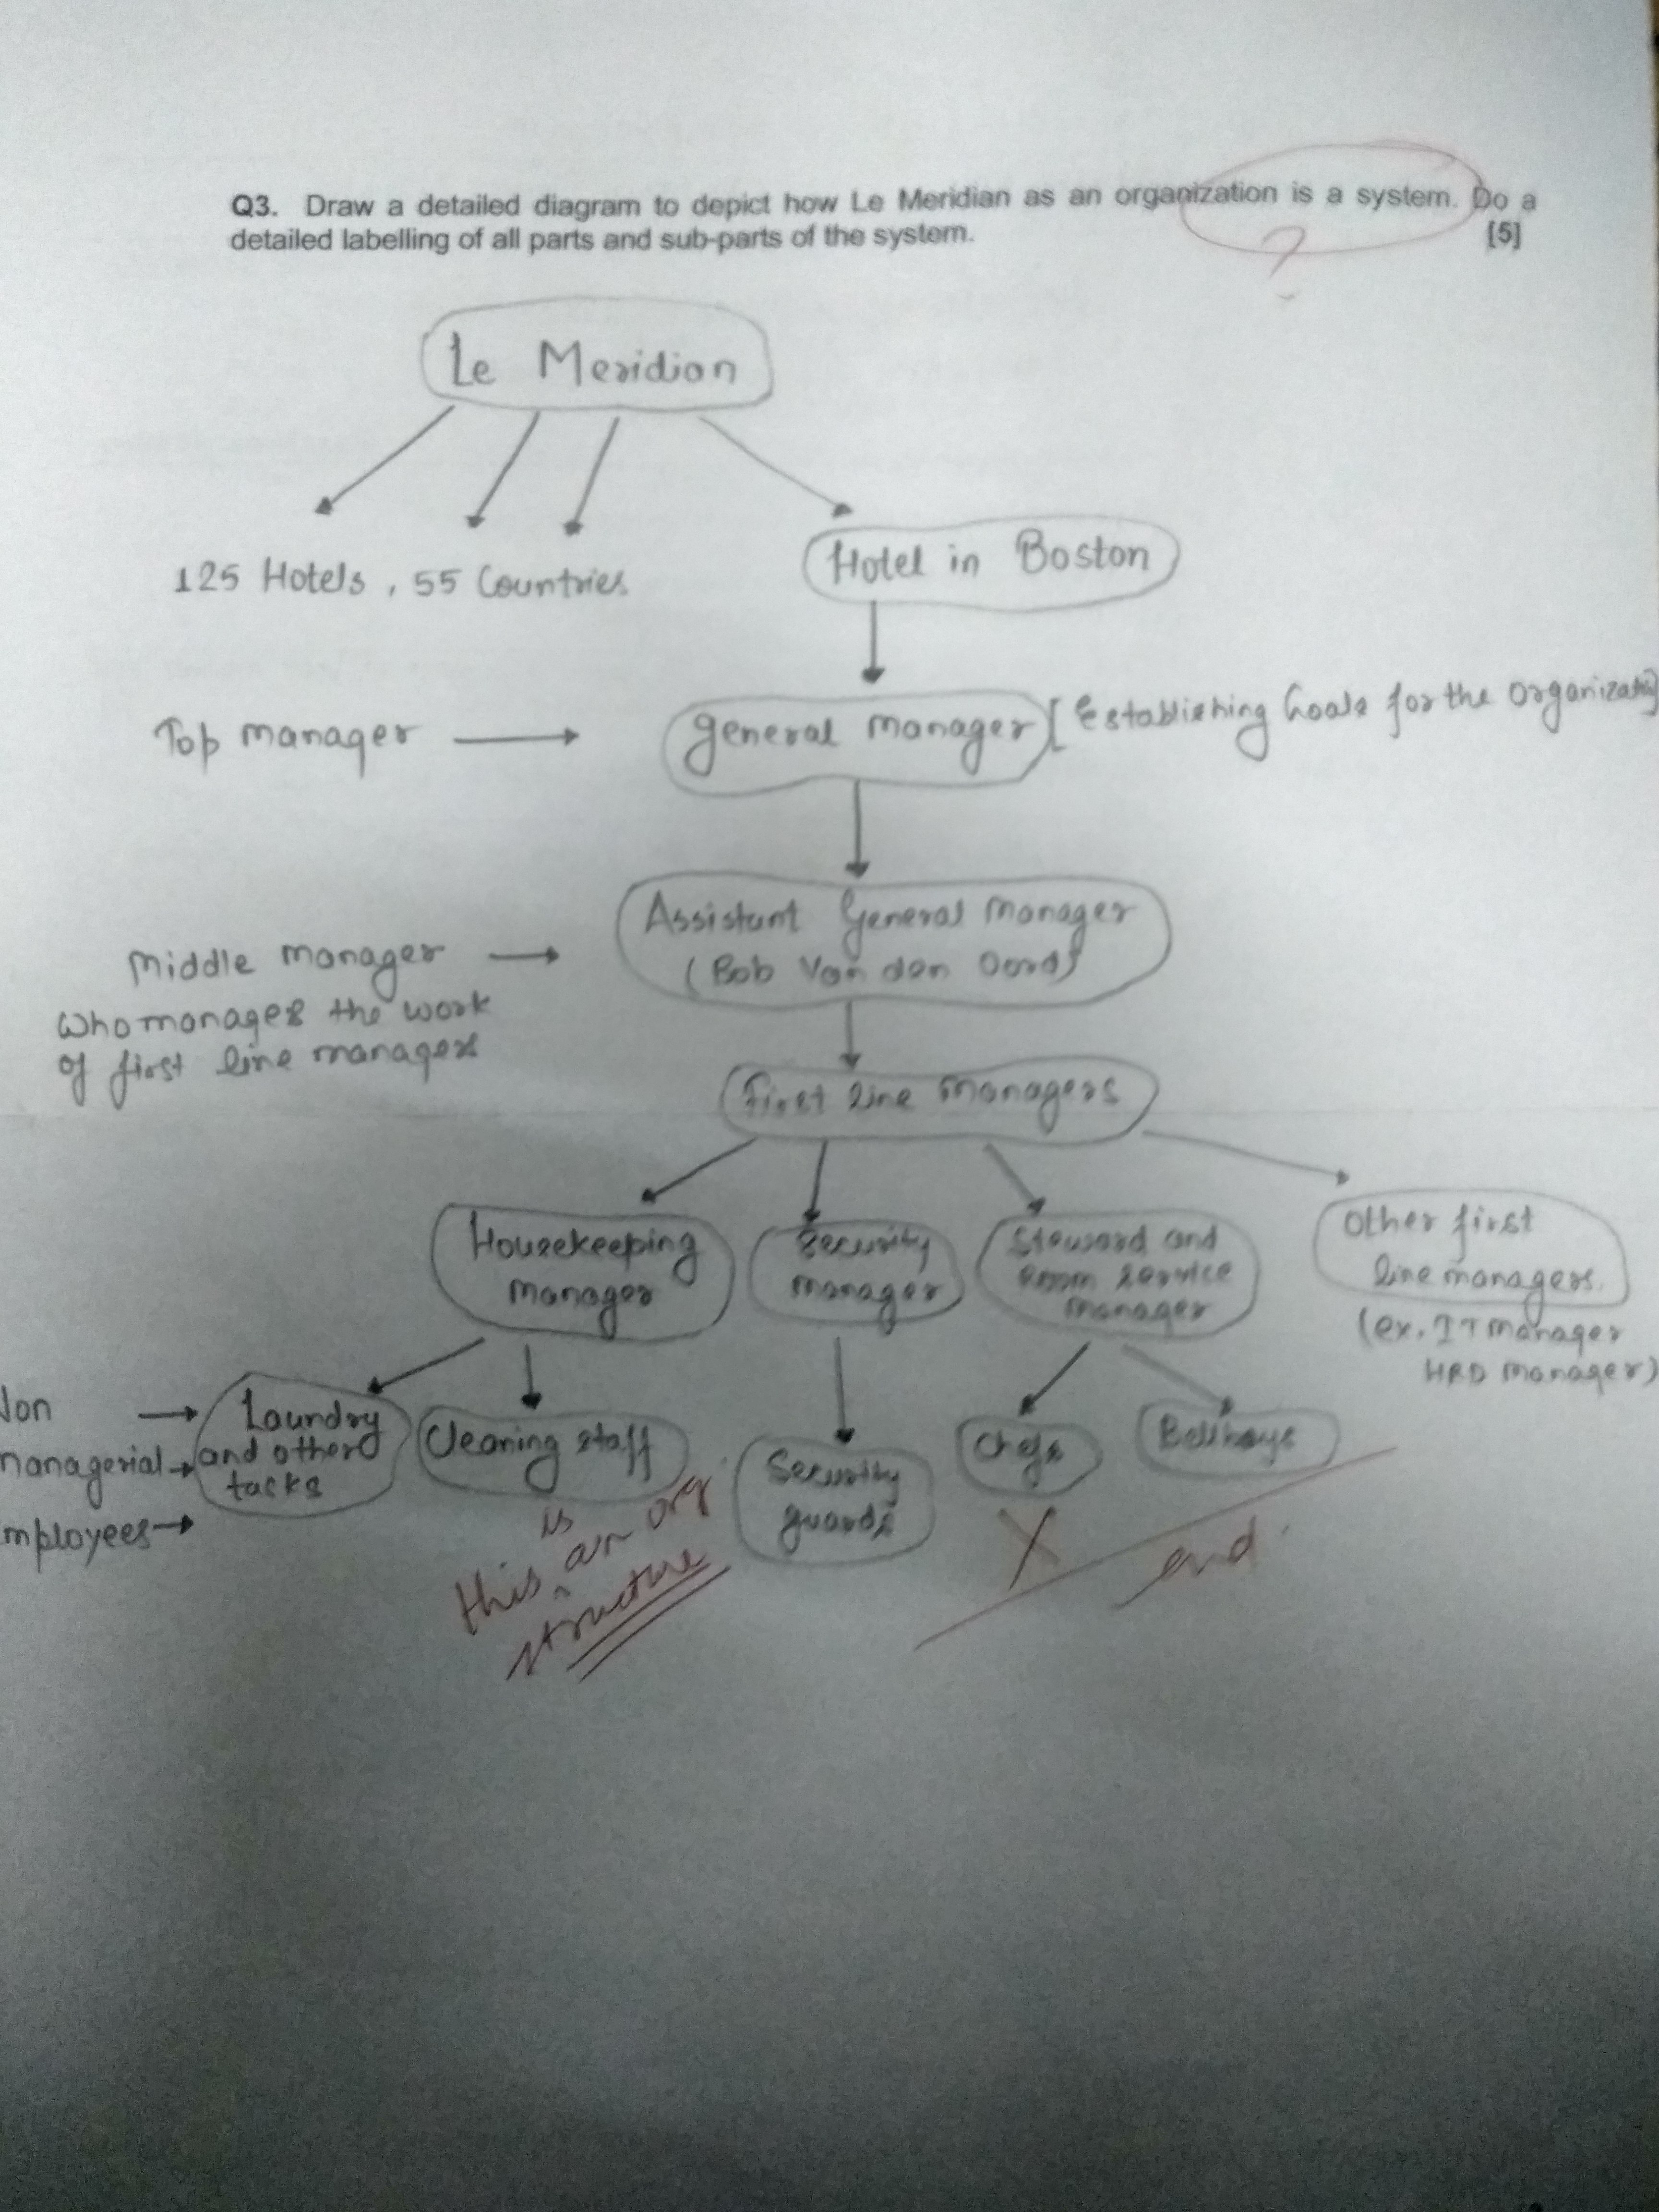 Q3. Draw a detailed diagram to depict how Le Meridian as an organization is a system. Do a
detailed labelling of all parts and sub-parts of the system. [5]
?
Le Meridian
125 Hotels, 55 Countries
Hotel in Boston
Top manager
general manager [Establishing Goals for the Organization]
Assistant General manager
(Bob Van den Oord)
Middle manager
who manages the work
of first line managers
First line managers
Housekeeping
manager
Security
manager
Steward and
Room service
manager
Other first
line managers.
(ex. IT manager
HRD manager)
Non
managerial
employees
Laundry
and other
tasks
Cleaning staff
Security
guards
Chefs
Bellboys
this is an org
structure
X
end